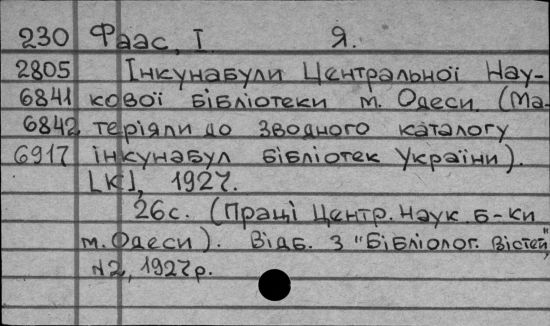 230 Фаас, І. Я.
2805 Інкунабули Центральної Нау-
6841 кової бібліотеки м. Одеси. (Ма-
6842 теріяли до зводного каталогу
6917 інкунабул бібліотек України).
[К], 1927.
26с. (Праці Центр. Наук. б-ки
м. Одеси). Відб. з "Бібліолог. Вістей",
N2, 1927р.